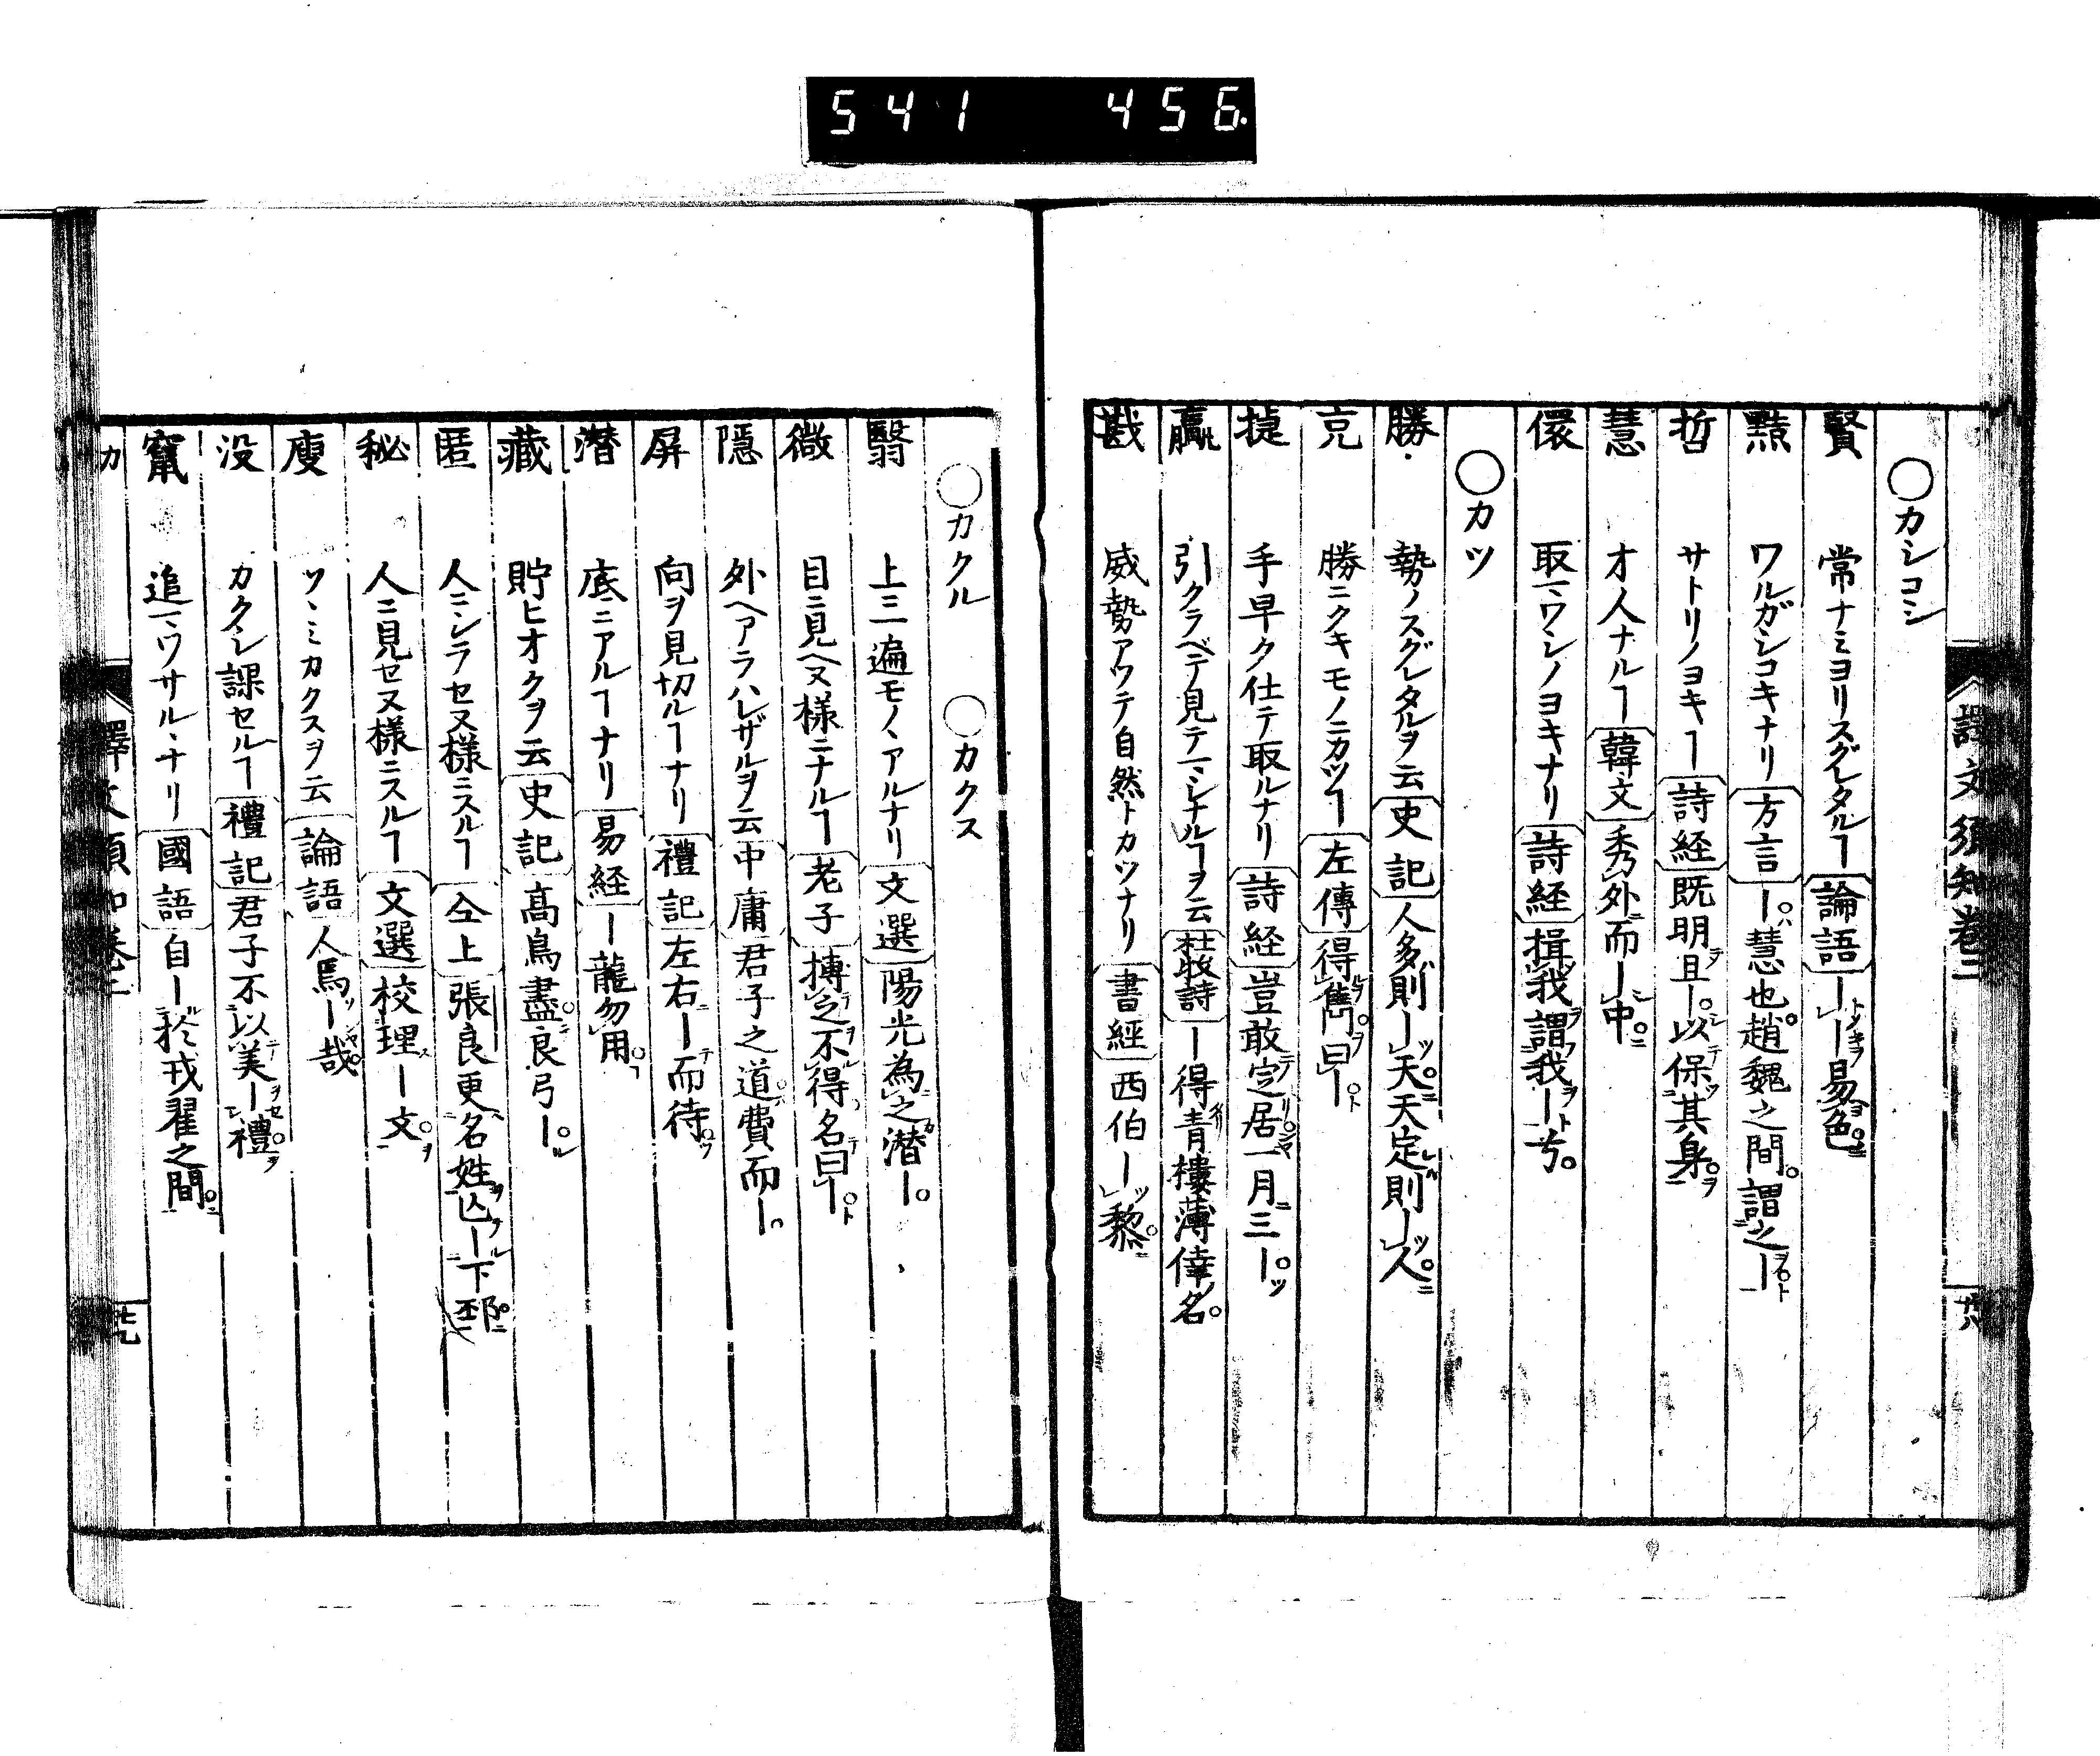 541 456
譯文須知卷二
廿八
○カシコシ
賢 常ナミヨリスグレタルヿ 論語 ー―ー易色
黠 ワルガシコキナリ 方言 ー慧也趙魏之間謂之ー
哲 サトリノヨキヿ 詩経 既明且ー以保其身
慧 才人ナルヿ 韓文 秀外而ー中
儇 取マワシノヨキナリ 詩経 揖我謂我ー兮
○カツ
勝 勢ノスグレタルヲ云 史記 人多則ー天天定則ー人
克 勝ニクキモノニカツヿ 左傳 得雋曰ー
捷 手早ク仕テ取ルナリ 詩経 豈敢定居一月三ー
贏 引クラベテ見テマシナルヿヲ云 杜牧詩 ー得青樓薄倖名
戡 威勢アツテ自然トカツナリ 書經 西伯ー黎
○カクル ○カクス
翳 上ニ一遍モノヽアルナリ 文選 陽光為之潜ー
微 目ニ見ヘヌ様ニナルヿ 老子 搏之不得名曰ー
隱 外ヘアラハレザルヲ云 中庸 君子之道費而ー
屏 向ヲ見切ルヿナリ 禮記 左右ー而待
潜 底ニアルヿナリ 易経 ー龍勿用
藏 貯ヒオクヲ云 史記 高鳥盡良弓ー
匿 人ニシラセヌ様ニスルヿ 仝上 張良更名姓亡ー下邳
秘 人ニ見セヌ様ニスルヿ 文選 校理ー文
廋 ツヽミカクスヲ云 論語 人焉ー哉
没 カクシ課セルヿ 禮記 君子不以美ー禮
竄 追マワサルヽナリ 國語 自ー於戎翟之間
カ
譯文須知卷二
廿九